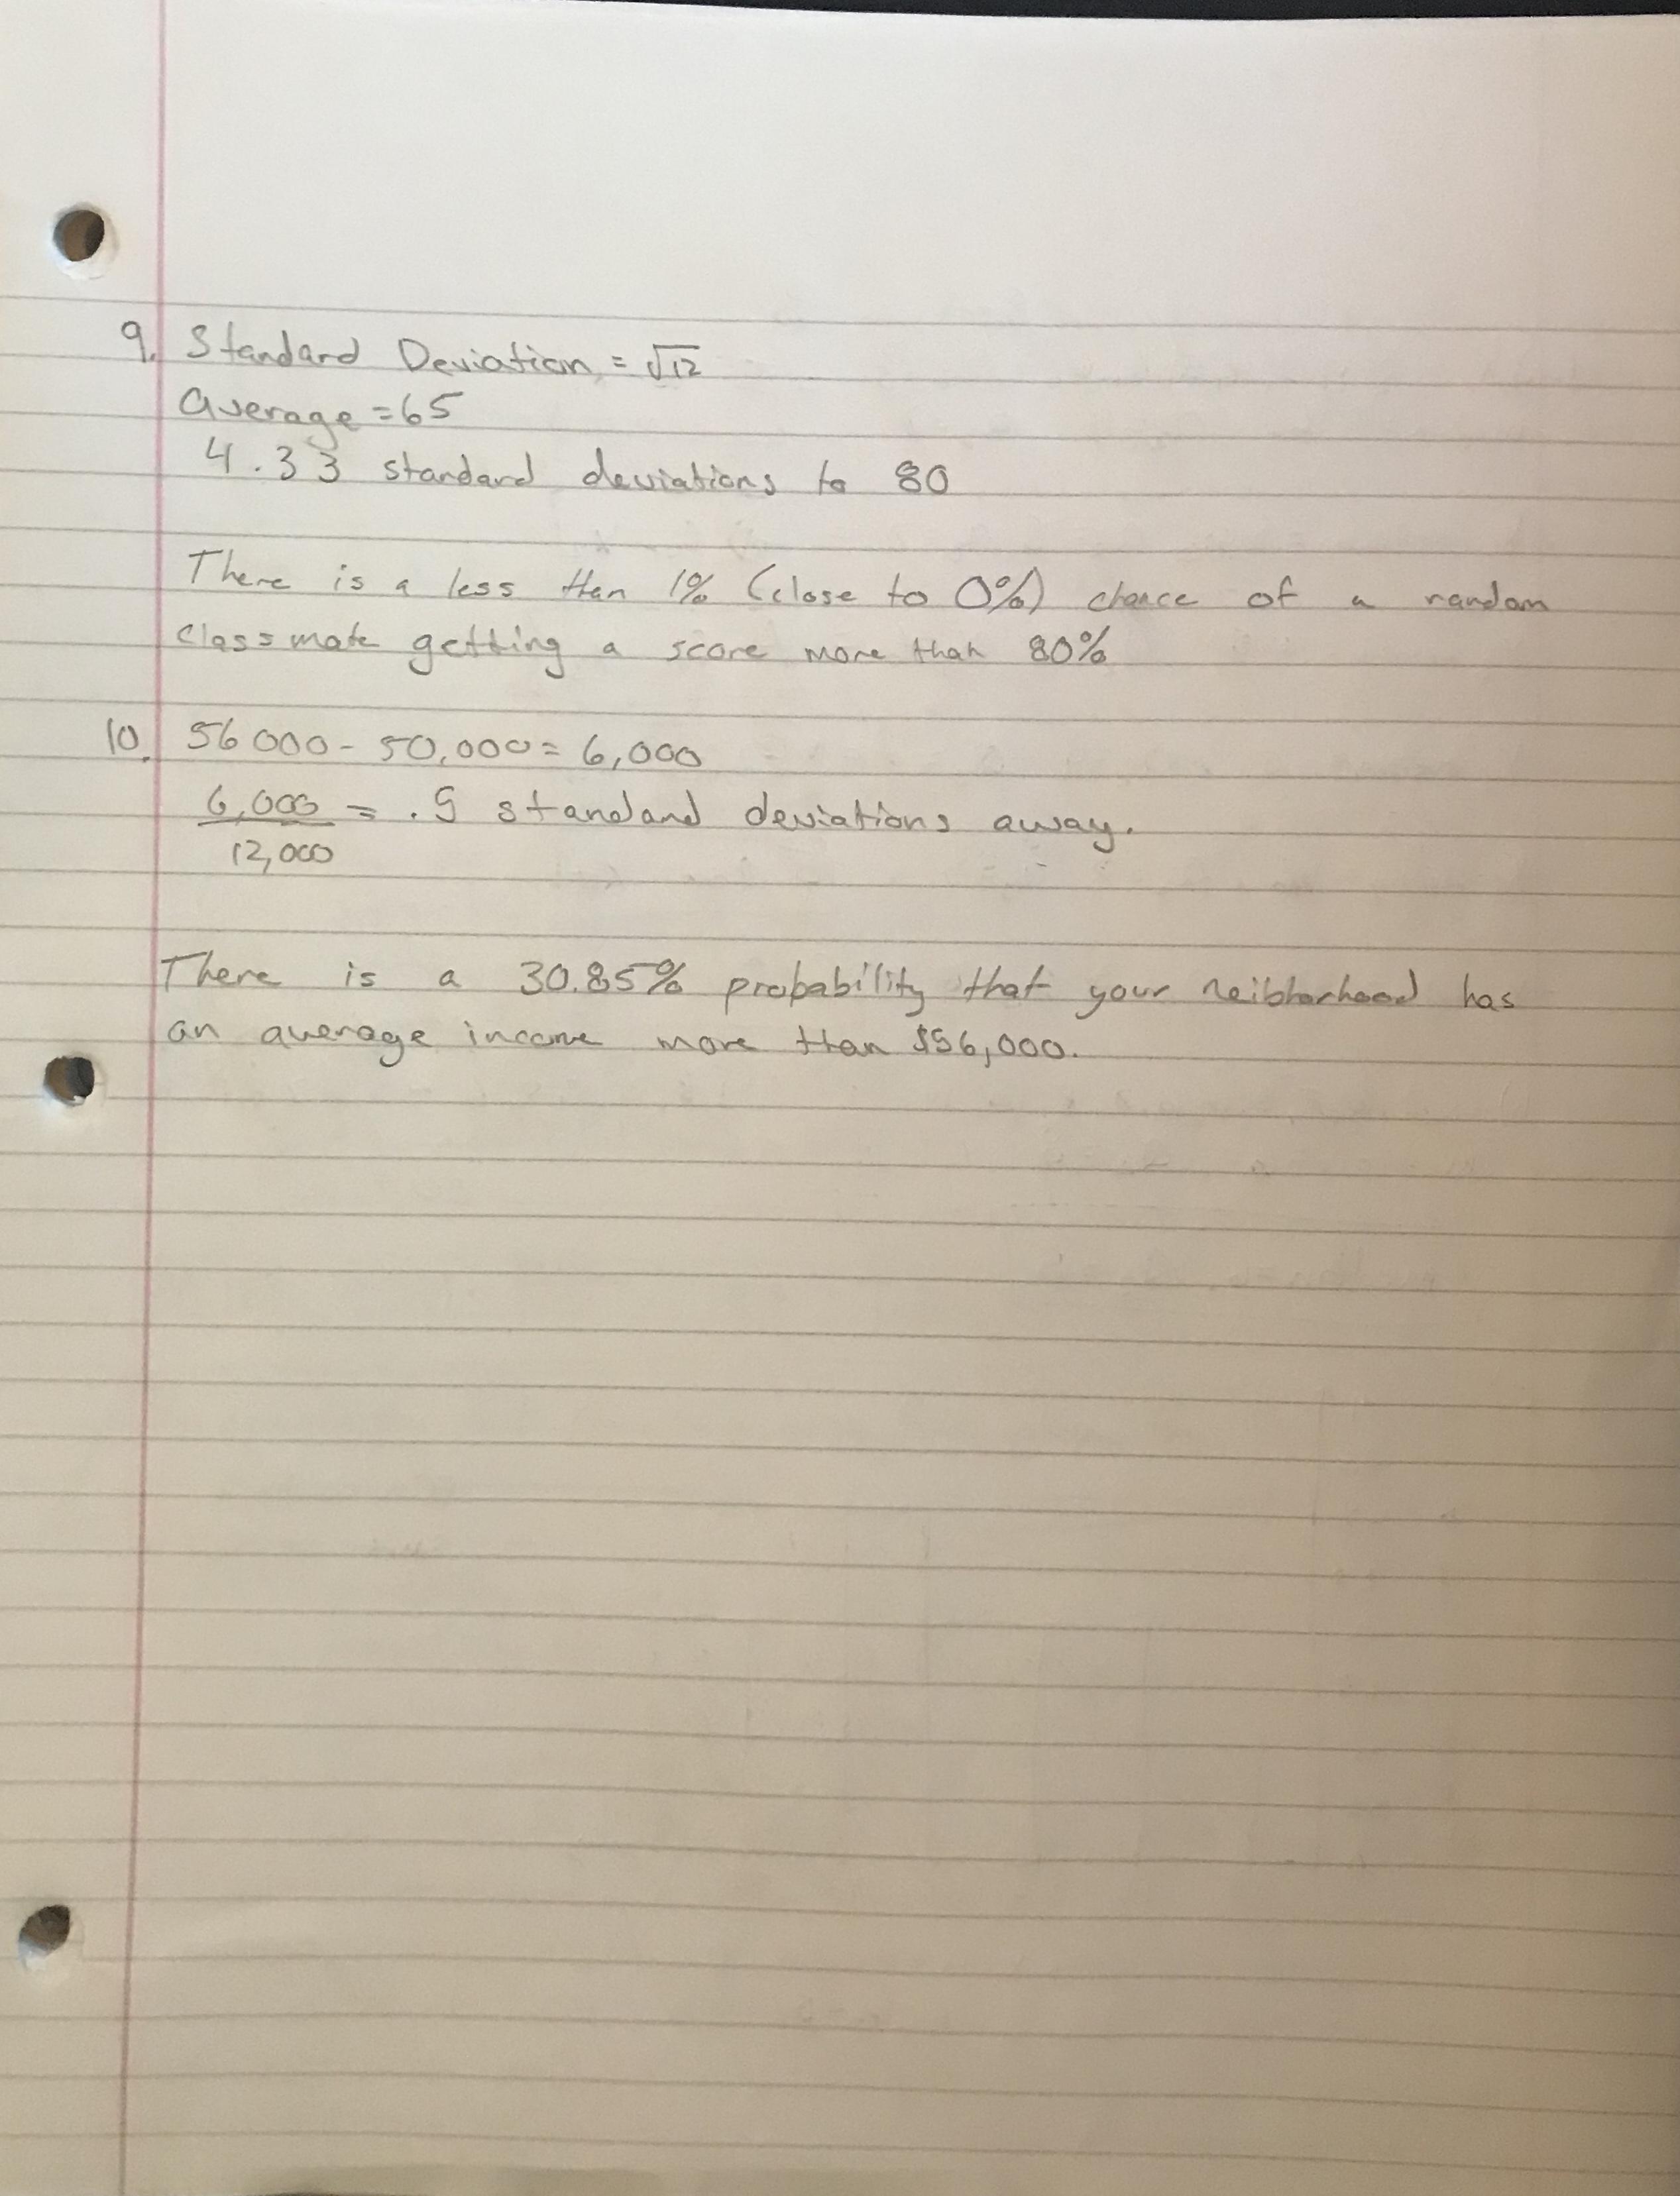 9. Standard Deviation = √12
average = 65
4.33 standard deviations to 80
There is a less then 1% (close to 0%) chance of a random
classmate getting a score more than 80%
10. 56000 - 50,000 = 6,000
6,000 = .5 standard deviations away.
12,000
There is a 30.85% probability that your neibhorhood has
an average income more than $56,000.